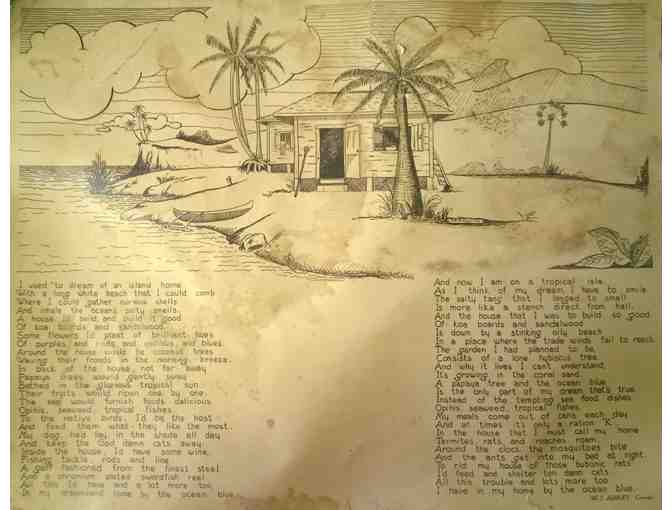 I used to dream of an island home
With a long white beach that I could comb
Where I could gather curious shells
And inhale the oceans salty smells.
A house I'd build and build it good
Of koa boards and sandalwood.
Some flowers I'd plant of brilliant hues
Of purples, and reds, and yellows, and blues.
Around the house would be coconut trees
Waving their fronds in the morning breeze.
In back of the house, not far away
Papaya trees would gently sway
Bathed in the glorious tropical sun
Their fruits would ripen one by one.
The sea would furnish foods delicious
Opihis, seaweed, tropical fishes
To the native birds I'd be the host
And feed them what they like the most.
My dog, he'd lay in the shade all day
And keep the God damn cats away.
Inside the house I'd have some wine,
Fishing tackle rods and line
A gaff fashioned from the finest steel
And a chromium plated swordfish reel
All this I'd have and a lot more too,
In my dreamland home by the ocean blue.
And now I am on a tropical isle,
As I think of my dream I have to smile.
The salty tang that I longed to smell
Is more like a stench direct from hell.
And the house that I was to build so good
Of koa boards and sandalwood
Is down by a stinking oily beach
In a place where the trade winds fail to reach.
The garden I had planned to be,
Consists of a lone hybiscus tree.
And why it lives I can't understand,
It's growing in the coral sand.
A papaya tree and the ocean blue
Is the only part of my dream that's true.
Instead of the tempting sea food dishes
Opihis, seaweed, tropical fishes,
My meals come out of cans each day
And at times it's only a ration "K"
In the house that I must call my home
Termites, rats, and roaches roam.
Around the clock the mosquitoes bite
And the ants get into my bed at night.
To rid my house of those bubonic rats
I'd feed and shelter ten damn cats
All this trouble and lots more too
I have in my home by the ocean blue.